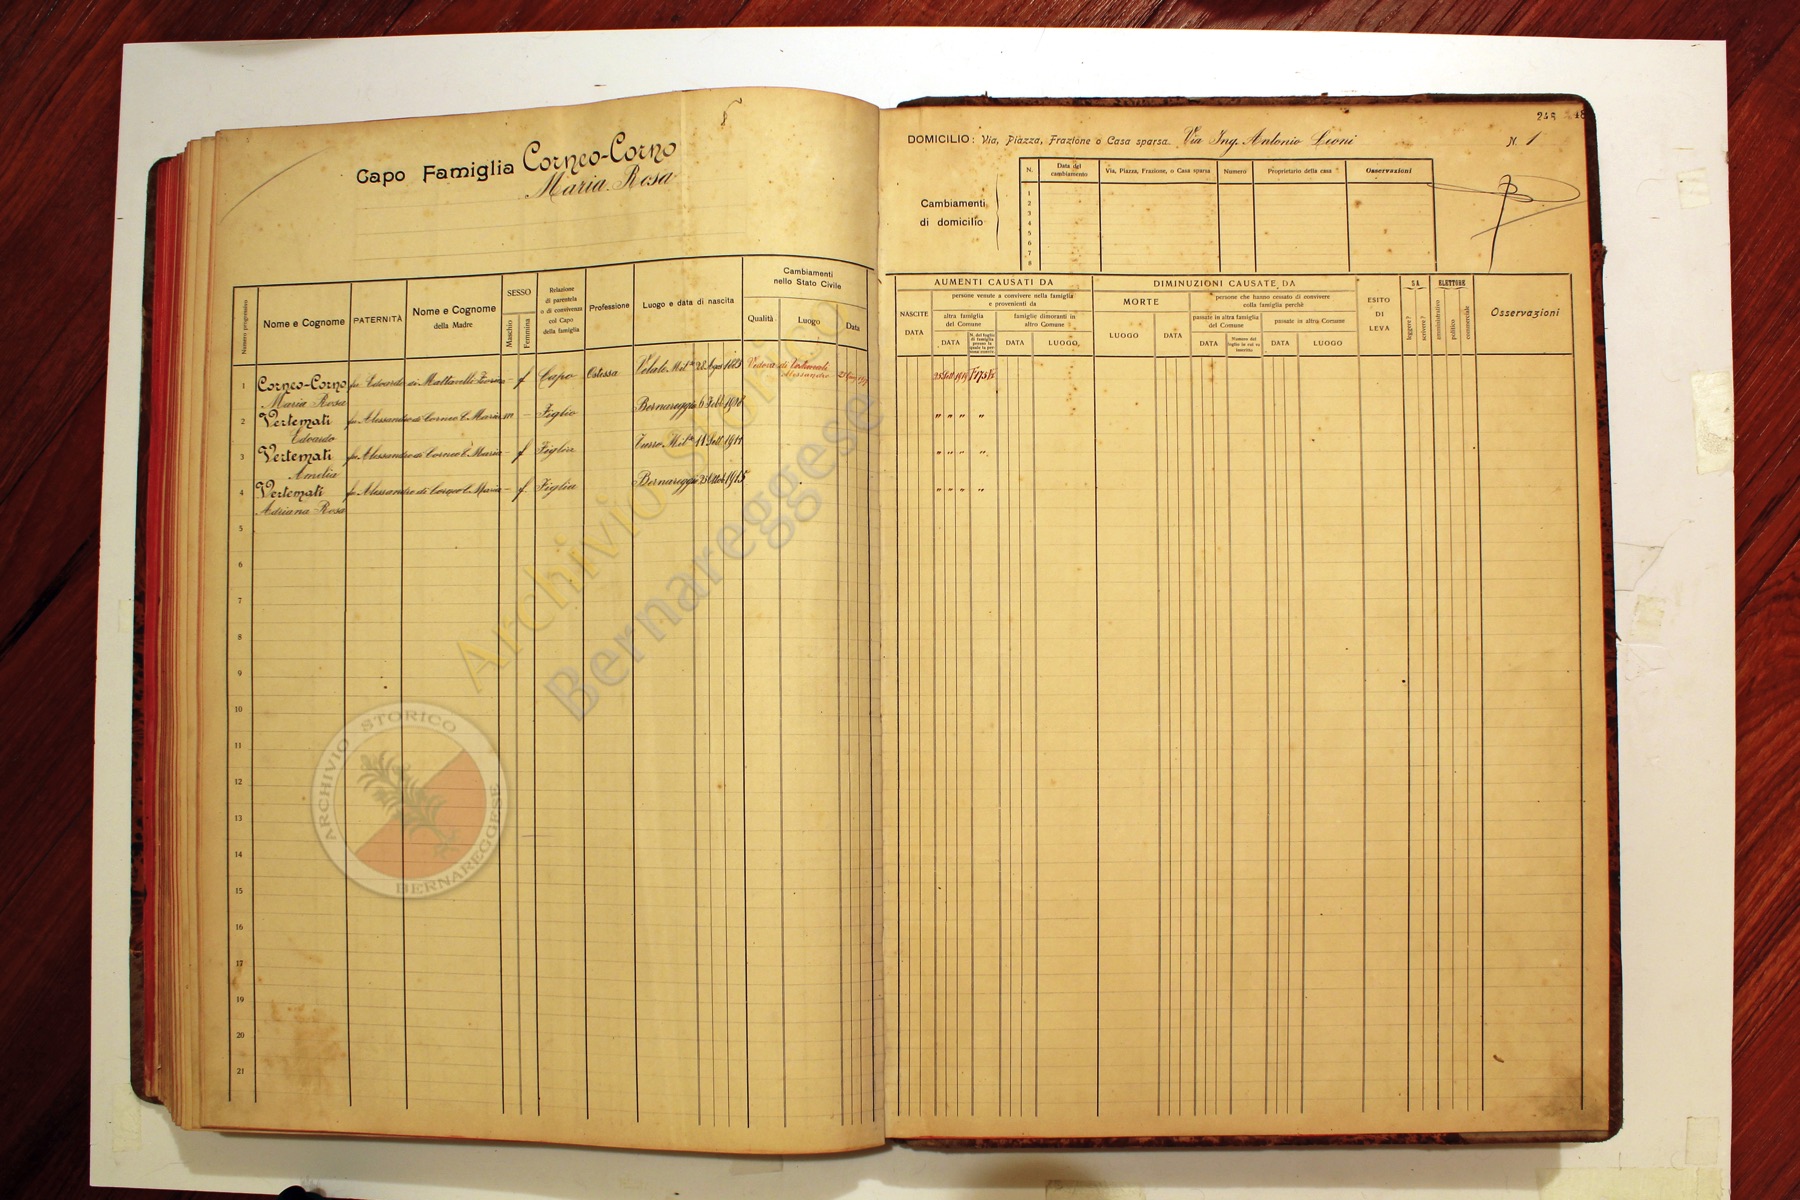 Capo Famiglia Corneo-Corno
Maria Rosa
Numero progressivo
Nome e Cognome
PATERNITÀ
Nome e Cognome
della Madre
SESSO
Maschio
Femmina
Relazione
di parentela
o di convivenza
col Capo
della famiglia
Professione
Luogo e data di nascita
Cambiamenti
nello Stato Civile
Qualità
Luogo
Data
1 Corneo-Corno fu Edoardo di Mattavelli - f Capo Ostessa Velate Mil.se Vedova di Vertemati
Maria Rosa Alessandro
2 Vertemati fu Alessandro di Corneo C. Maria m - Figlio Bernareggio 6
Edoardo
3 Vertemati fu Alessandro di Corneo C. Maria - f Figlia 11 Sett. 1911
Amelia
4 Vertemati fu Alessandro di Corneo C. Maria - f Figlia Bernareggio 1915
Adriana Rosa
5
6
7
8
9
10
11
12
13
14
15
16
17
18
19
20
21
248
DOMICILIO: Via, Piazza, Frazione o Casa sparsa Via Ing. Antonio Leoni N. 1
Cambiamenti
di domicilio
N.
Data del
cambiamento
Via, Piazza, Frazione, o Casa sparsa
Numero
Proprietario della casa
Osservazioni
1
2
3
4
5
6
7
8
NASCITE
DATA
AUMENTI CAUSATI DA
persone venute a convivere nella famiglia
e provenienti da
altra famiglia
del Comune
DATA
N. del foglio
di famiglia
presso la
quale la per-
sona convive.
famiglie dimoranti in
altro Comune
DATA
LUOGO
DIMINUZIONI CAUSATE DA
MORTE
LUOGO
DATA
persone che hanno cessato di convivere
colla famiglia perchè
passate in altra famiglia
del Comune
DATA
Numero del
foglio in cui va
inscritto
passate in altro Comune
DATA
LUOGO
ESITO
DI
LEVA
SA
leggere?
scrivere?
ELETTORE
amministrativo
politico
commerciale
Osservazioni
25 Sett 1919
" " " "
" " " "
" " " "
Archivio Storico
Bernareggese
ARCHIVIO STORICO
BERNAREGGESE